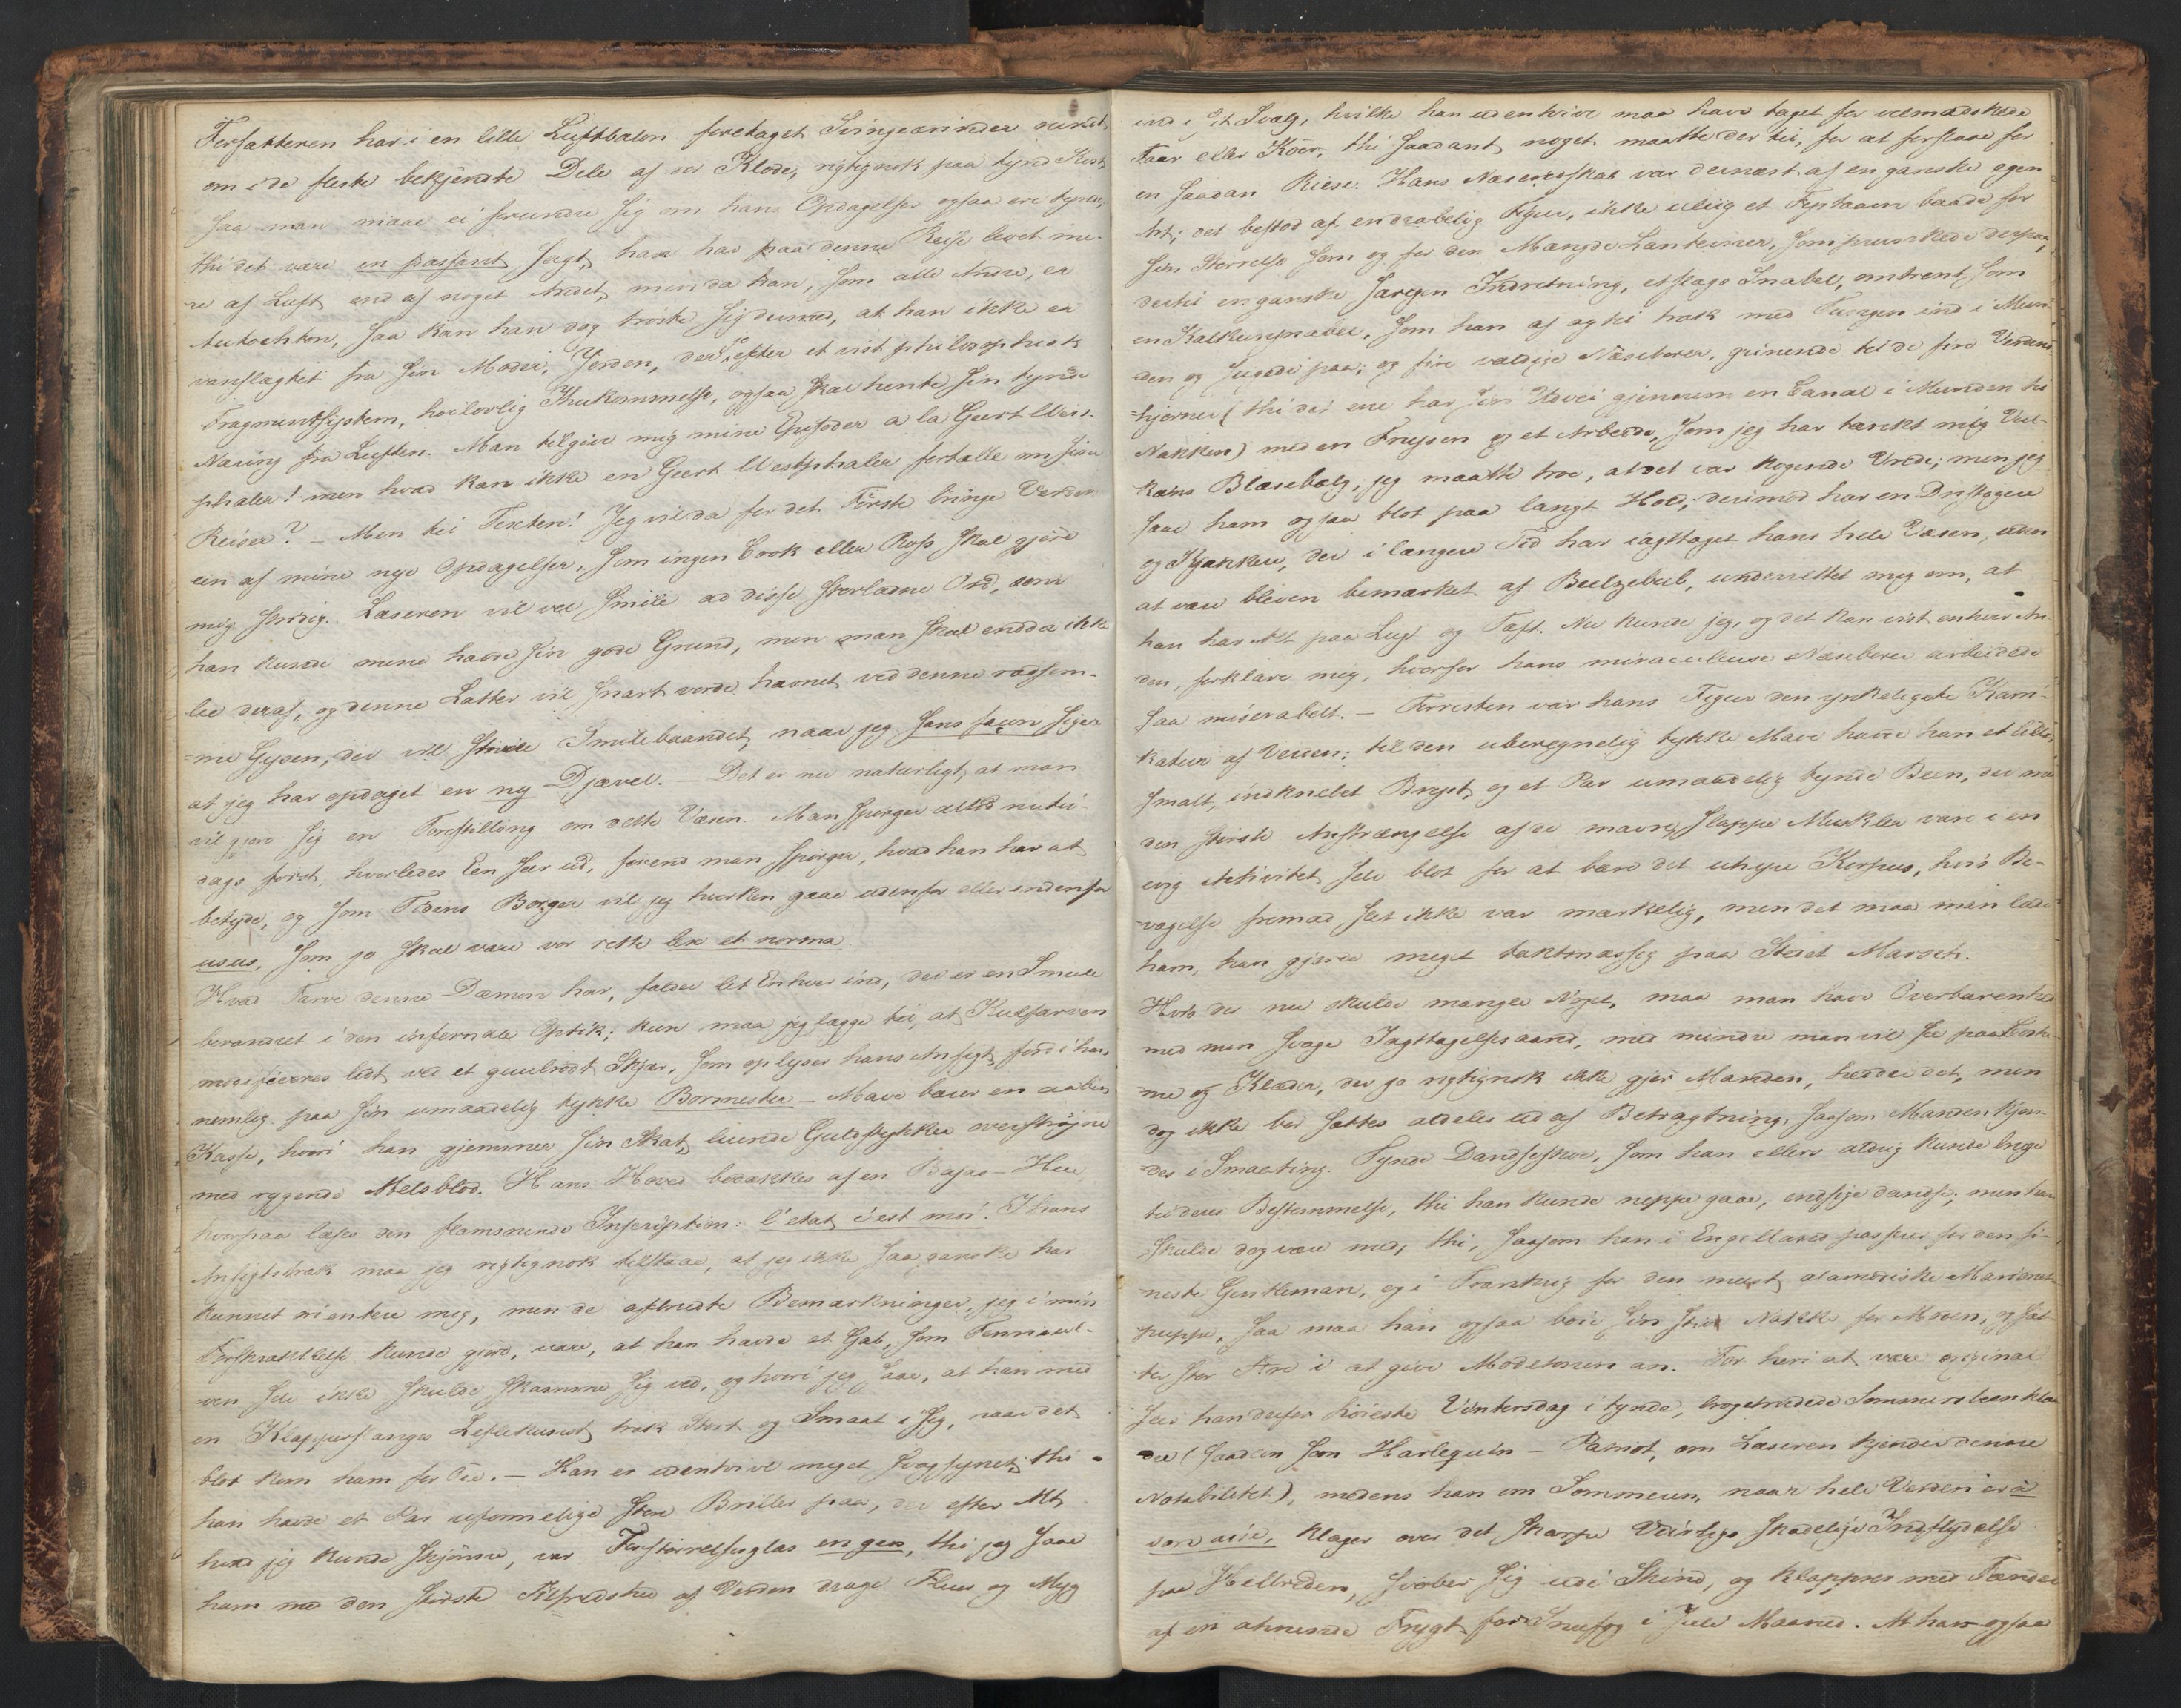 Forfatteren har i en lille Luftbalon foretaget Svingeærinder rundt
om i de fleste bekjendte Dele af vor Klode, rigtignok paa tynd Kost,
saa man maae ei forundre sig om hans Opdagelser ogsaa ere tynde,
thi det være en passant sagt, han har paa denne Reise levet me-
re af Luft end af noget Andet, men da han, som alle Andre, er
Autochton, saa kan han dog trøste sig dermed, at han ikke er
vanslægtet fra sin Moder, Jorden, der jo efter et vist philosophisk
Fragmentsystem, høilovlig Ihukommelse, ogsaa skal hente sin tynde
Næring fra Luften. Man tilgive mig mine Episoder a la Geert West-
phaler! men hvad kan ikke en Geert Westphaler fortælle om sine
Reiser? – Men til Texten! Jeg vil da for det Første bringe Verden
een af mine nye Opdagelser, som ingen Cook eller Ross skal gjøre
mig stridig. Læseren vil vel smile ad disse storladne Ord, som
han kunde mene havde sin gode Grund, men man skal endda ikke
lee deraf, og denne Latter vil snart vorde hævnet ved denne rædsom-
me Gysen, der vil stive Smilebaandet, naar jeg sans façon siger
at jeg har opdaget en ny Djævel. – Det er nu naturligt, at man
vil gjøre sig en Forestilling om dette Væsen. Man spørger altid nutil-
dags først, hvorledes Een seer ud, førend man spørger, hvad han har at
betyde, og som Tidens Borger vil jeg hverken gaae udenfor eller indenfor
usus, som jo skal være vor rette lex et norma.
Hvad Farve denne Dæmon har, falder let Enhver ind, der er en Smule
bevandret i den infernale Optik; kun maa jeg lægge til, at Kulfarven
modificeres lidt ved et guulrødt Skjær, som oplyser hans Ansigt, fordi han
nemlig paa sin umaadelig tykke Bormester-Mave bærer en aaben
Kasse, hvori han gjemmer sin Skat, luende Guldstykker overstrøjede
med rygende Adelsblod. Hans Hoved bedækkes af en Bajas-Hue
hvorpaa læses den flammende Inscription: l'etat c'est moi. I hans
Ansigtstræk maa jeg rigtignok tilstaae, at jeg ikke saa ganske har
kunnet orientere mig, men de aftrædte Bemærkninger, jeg i min
Forskrækkelse kunde gjøre, vare, at han havde et Gab, som Fenrisul-
ven selv ikke skulde skamme sig ved, og hvori jeg saae, at han med
en Klapperslanges Leflekunst trak Stort og Smaat i sig, naar det
blot kom ham for Øie. – Han er udentvivl meget svagsynet; thi
han havde et Par uformelige store Briller paa, der efter Alt,
hvad jeg kunde skjønne, var Forstørrelsesglas en gros, thi jeg saae
ham med den største Tilfredshed af Verden drage Fluer og Myg
ind i sit Svælg, hvilke han udentvivl maa have taget for velmædskede
Faar eller Køer; thi saadant noget maatte der til, for at forslaae for
en saadan Riese. Hans Næseredskab var dernæst af en ganske egen
Art; det bestod af en Snabelig Figur, ikke uliig et Fyrtaarn baade for
sin Størrelse som og for den Mængde Lanterner, som prunkede derpaa,
dertil en ganske særegen Indretning, etslags Snabel, omtrent som
en Kalkunsnabel, som han af og til trak med Tungen ind i Mun-
den og sugede paa; og fire vældige Næseborer, grinende til de fire Verdens-
hjørner (thi det ene har sin Udvei gjennem en Canal i Munden til
Nakken) med en Frysen og et Arbeide, som jeg har tænkt mig Vul-
kans Blæsebælg; jeg maatte troe, at det var kogende Vrede; men jeg
saae ham ogsaa blot paa langt Hold; derimod har en Dristigere
og Kjækkere, der i længere Tid har iagttaget hans hele Væsen, uden
at være bleven bemærket af Beelzebub, underrettet mig om, at
han har Alt paa Lugt og Tast. Nu kunde jeg, og det kan vist enhver An-
den, forklare mig, hvorfor hans miraculeuse Næseborer arbeidede
saa miserabelt. – Forresten var hans Figur den ynkeligste Karri-
katur af Verden; til den uberegnelig tykke Mave havde han et lille,
smalt, indknebet Bryst, og et Par umaadelig tynde Been, der med
den største Anstrængelse af de mavre, slappe Muskler vare i en
evig Aktivitet selv blot for at bære det uhyre Korpus, hvis Be-
vægelse fremad slet ikke var mærkelig, men det maa man lade
ham, han gjorde meget taktmæssig paa Stedet Marsch.
Hvis der nu skulde mangle Noget, maa man have Overbærenhed
med min svage Iagttagelsesaand, med mindre man vil see paa Skoe-
ne og Klæder, der jo rigtignok ikke gjør Manden, hedder det, men
dog ikke bør sættes aldeles ud af Betragtning, saasom Manden kjen-
des i Smaating. Tynde Dandseskoe, som han ellers aldrig kunde bruge
til deres Bestemmelse, thi han kunde neppe gaae, endsige dandse; men han
skulde dog være med, thi, saasom han i Engelland passer for den fi-
neste Gentleman, og i Frankrig for den meest alamodiske Marionet-
puppe, saa maa han ogsaa bøie sin stive Nakke for Moden, og sæt-
ter stor Ære i at give Modetonen an. For heri at være original
seer han derfor koldeste Vintersdag i tynde, brogetrødede Sommersbeenklæ-
der (saadan som Harlequin-Patriot, om Læseren kjender denne
Notabilitet), medens han om Sommeren, naar hele Verden er à
son aise, klager over det skarpe Veirligs skadelige Indflydelse
paa Helbreden, svøber sig ud i Skind, og klapprer med Tænder
af en ahnende Frygt for Sneefog i Julii Maaned. At han ogsaa